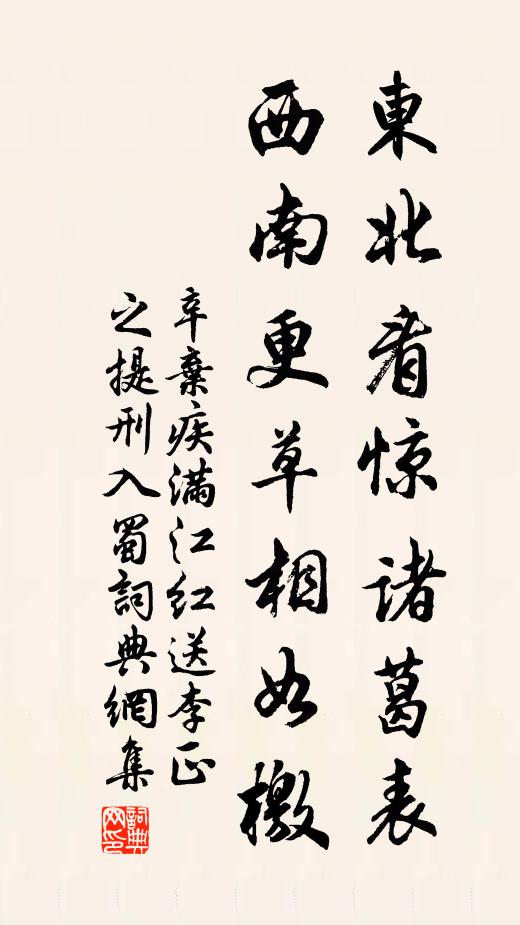 東北看惊諸葛表
西南更草相如檄
辛棄疾满江红送李正
之提刑入蜀詞典網集
詞典
网印